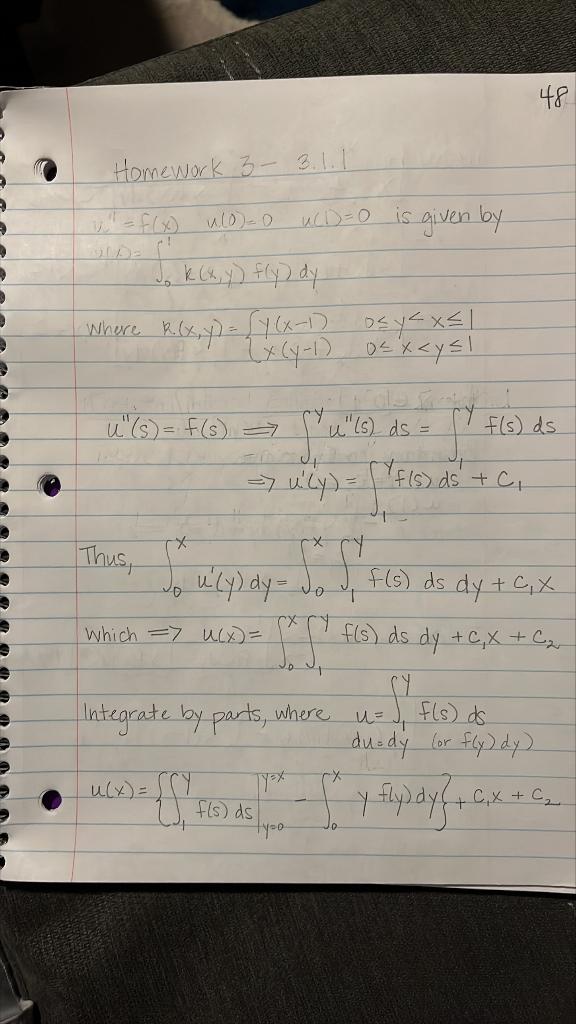 48
Homework 3 - 3.1.1
u'' = f(x) u(0)=0 u(1)=0 is given by
u(x) = ∫₀¹ k(x,y) f(y) dy
where k(x,y) = { y(x-1) 0≤y<x≤1
{ x(y-1) 0≤x<y≤1
u''(s) = f(s) ⟹ ∫₁^y u''(s) ds = ∫₁^y f(s) ds
⟹ u'(y) = ∫₁^y f(s) ds + C₁
Thus, ∫₀^x u'(y) dy = ∫₀^x ∫₁^y f(s) ds dy + C₁x
which ⟹ u(x) = ∫₀^x ∫₁^y f(s) ds dy + C₁x + C₂
Integrate by parts, where u = ∫₁^y f(s) ds
du = dy (or f(y) dy)
u(x) = { ∫∫₁^y f(s) ds |_{y=0}^{y=x} - ∫₀^x y f(y) dy } + C₁x + C₂